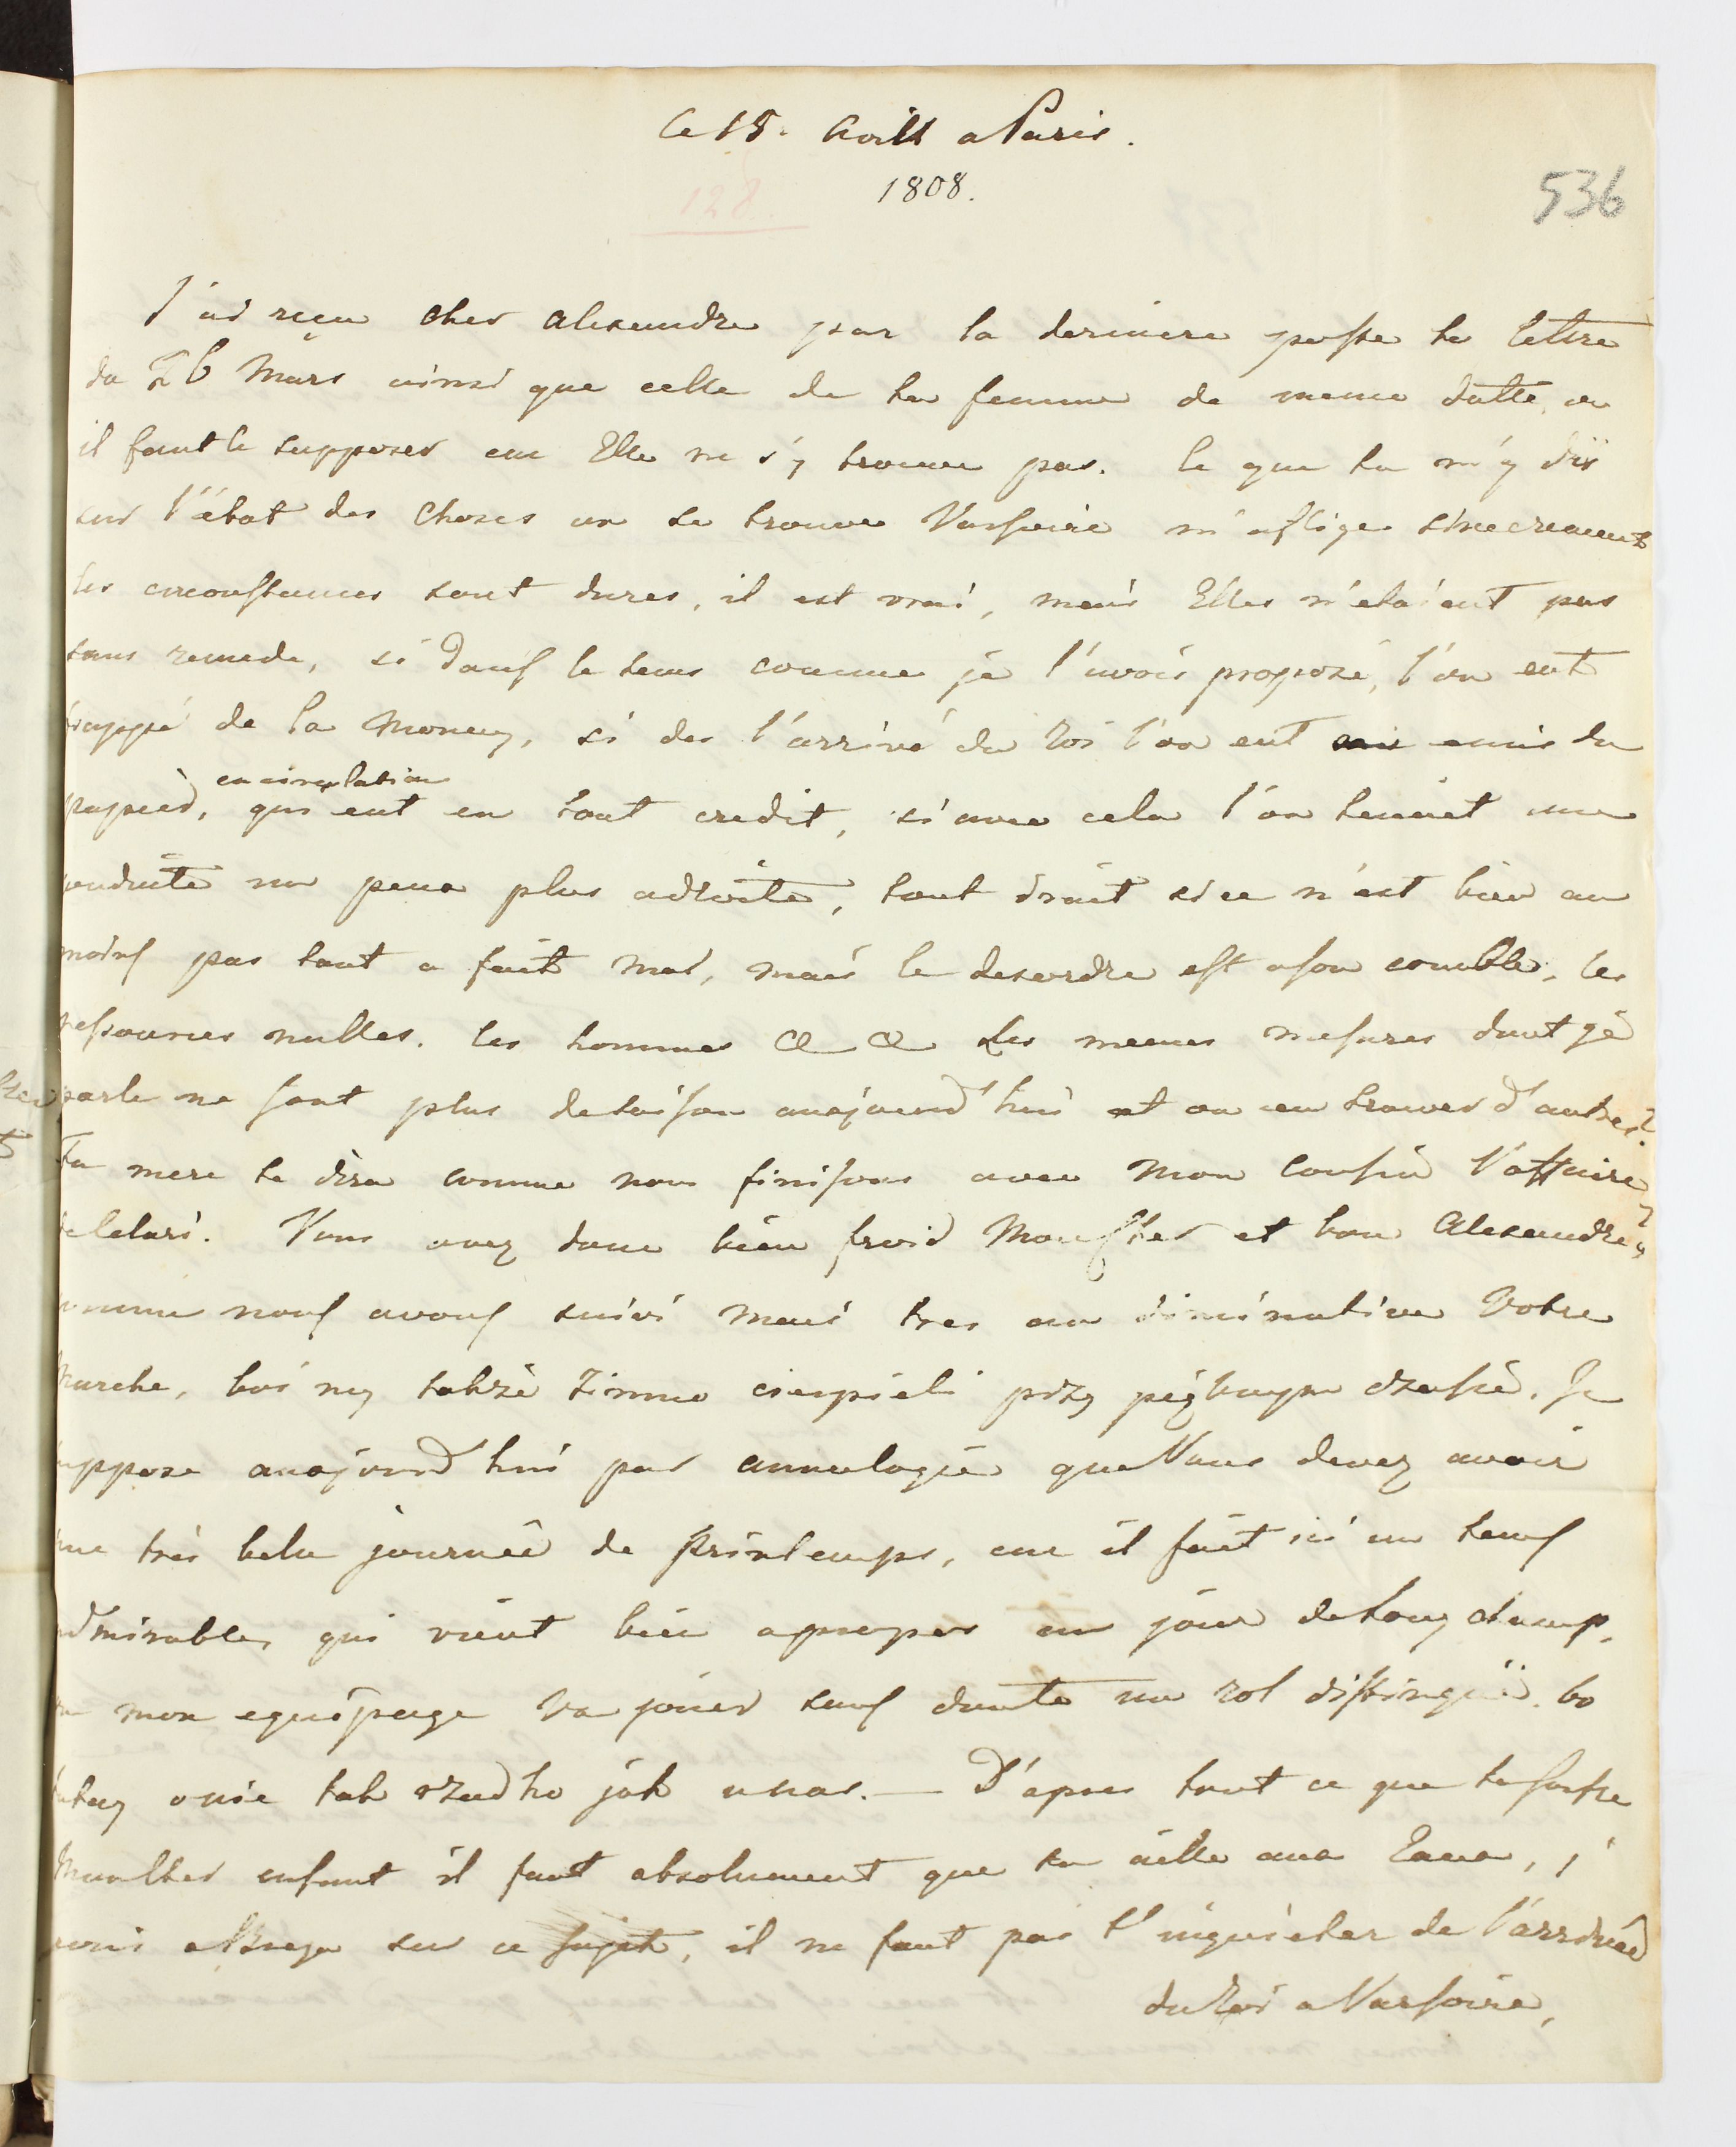 Ce 15. Avill a Paris.
1808.
128.
536
J'ai reçu cher alexandre par la derniere poste ta lettre
du 26 Mars ainsi que celle de ta femme de meme datte, ou
il faut le supposer car Elle ne s'y trouve pas. Ce que tu m'y dis
sur l'état des choses ou se trouve Varsovie m'aflige sincerement
les circonstances sont dures, il est vrai, mais Elles n'etaient pas
sans remede, si dans le tems comme je l'avois proposé, l'on eut
frappé de la Money, si des l'arrivé du Roi l'on eut emis du
en circulation
papied, qui eut en tout credit, si avec cela l'on tenoit une
conduite un peux plus adroite, tout iroit si ce n'est bien au
moins pas tout a fait mal, mais le desordre est a son comble, les
ressources nulles. les hommes & & Les memes mesures dont je
parle ne sont plus de saison aujourd'hui et ou en trouver d'autres?
Ta mere te dira comme nous finisons avec Mon Cousin l'affaire
Vous avez donc bien froid Mon cher et bon Alexandre,
comme nous avons suivi mais tres au diminutive Votre
Marche, tosmy takze zimno cierpieli przy pięknym czasie. Je
suppose aujourd'hui par annalogie que Vous devez avoir
une très belle journée de Printemps, car il fait ici un tems
admirable, qui vient bien apropos un jour de Long champ,
ou mon equipage va jouer sans doute un rol distingué. bo
tutay o nie tak rzadko jak u nas. — D'apres tout ce que ta
Mon cher enfant il faut absolument que tu aille aux Eaux, j'
ecris a sur ce sujet, il ne faut pas t'inquieter de l'arrivée
du Roi a Varsovie,